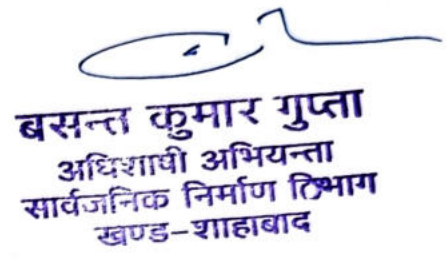 बसन्त कुमार गुप्ता
अधिशाषी अभियन्ता
सार्वजनिक निर्माण विभाग
खण्ड-शाहाबाद